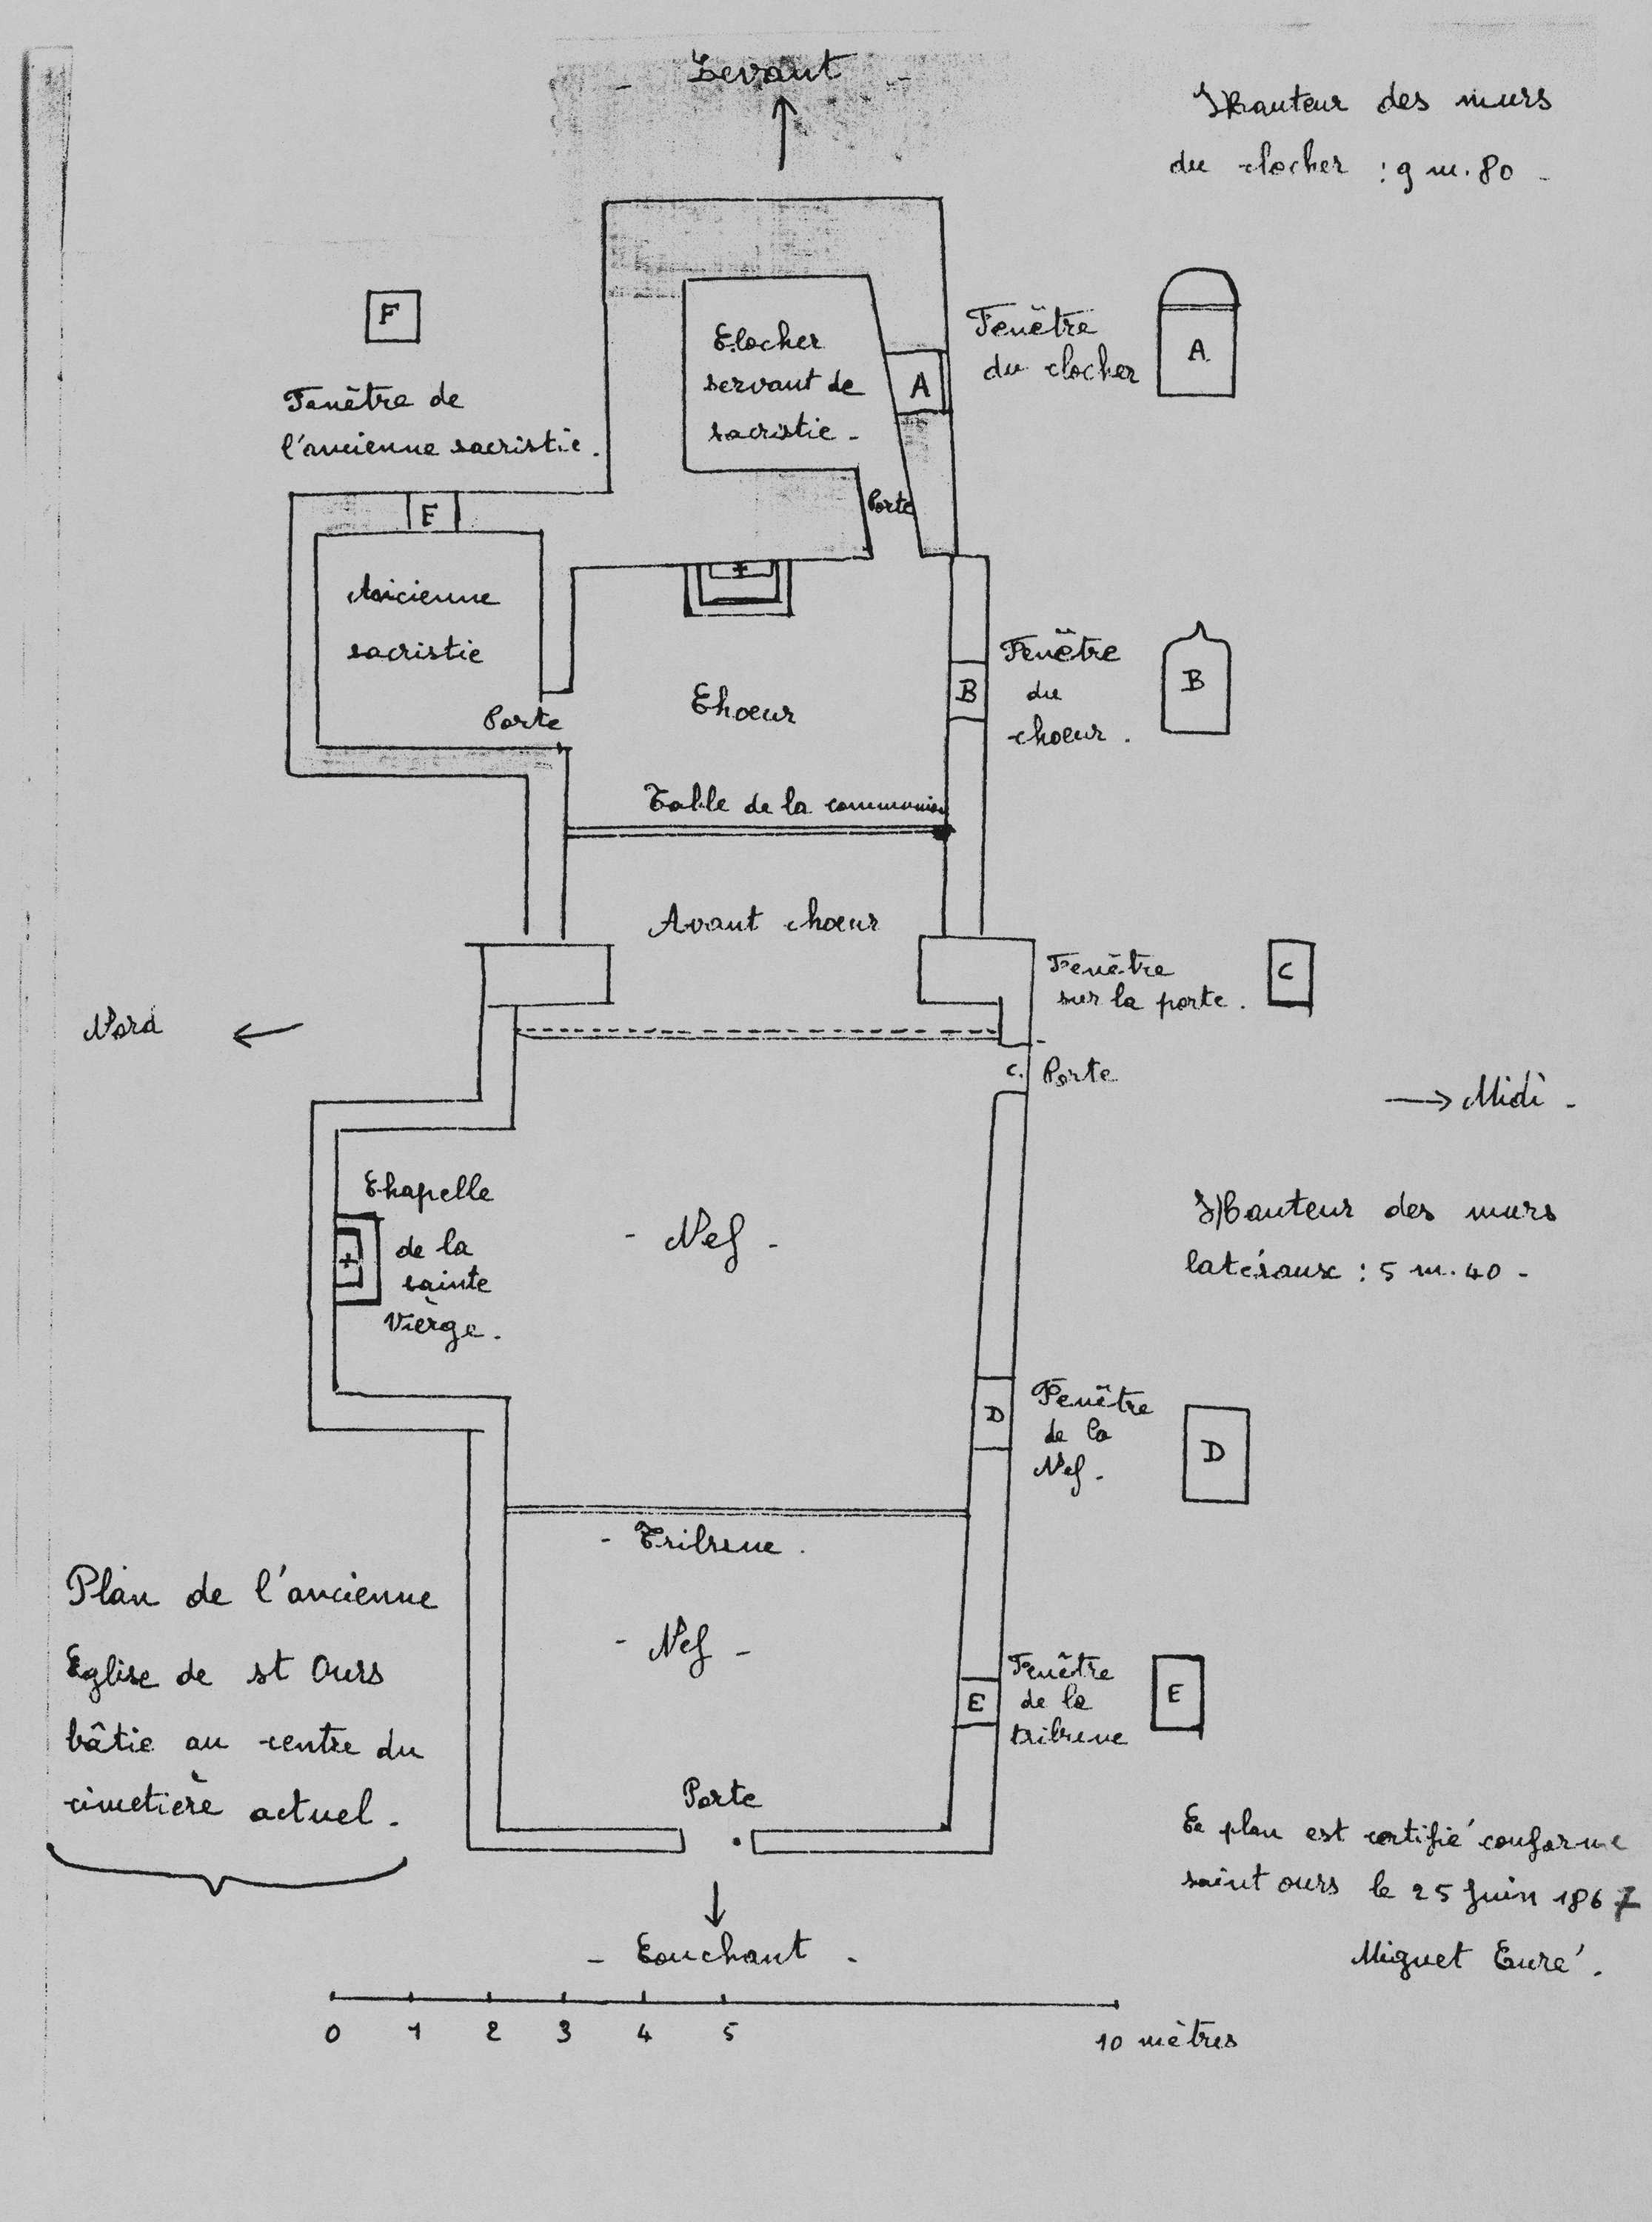 - Levant -
Hauteur des murs
du clocher : 9 m. 80 -
F
Fenêtre de
l'ancienne sacristie.
F
Clocher
servant de
sacristie -
A
Fenêtre
du clocher
A
Porte
Ancienne
sacristie
Porte
Choeur
B
Fenêtre
du
choeur.
B
Table de la communion
Avant choeur
Fenêtre
sur la porte.
C
Nord
C. Porte
Midi -
Chapelle
de la
sainte
Vièrge.
- Nef -
Hauteur des murs
latéraux : 5 m. 40 -
D
Fenêtre
de la
Nef -
D
- Tribune .
- Nef -
Plan de l'ancienne
Eglise de st Ours
bâtie au centre du
cimetière actuel.
E
Fenêtre
de la
tribune
E
Porte
Ce plan est certifié conforme
saint ours le 25 Juin 1867
Miguet Curé.
- Couchant -
0 1 2 3 4 5 10 mètres